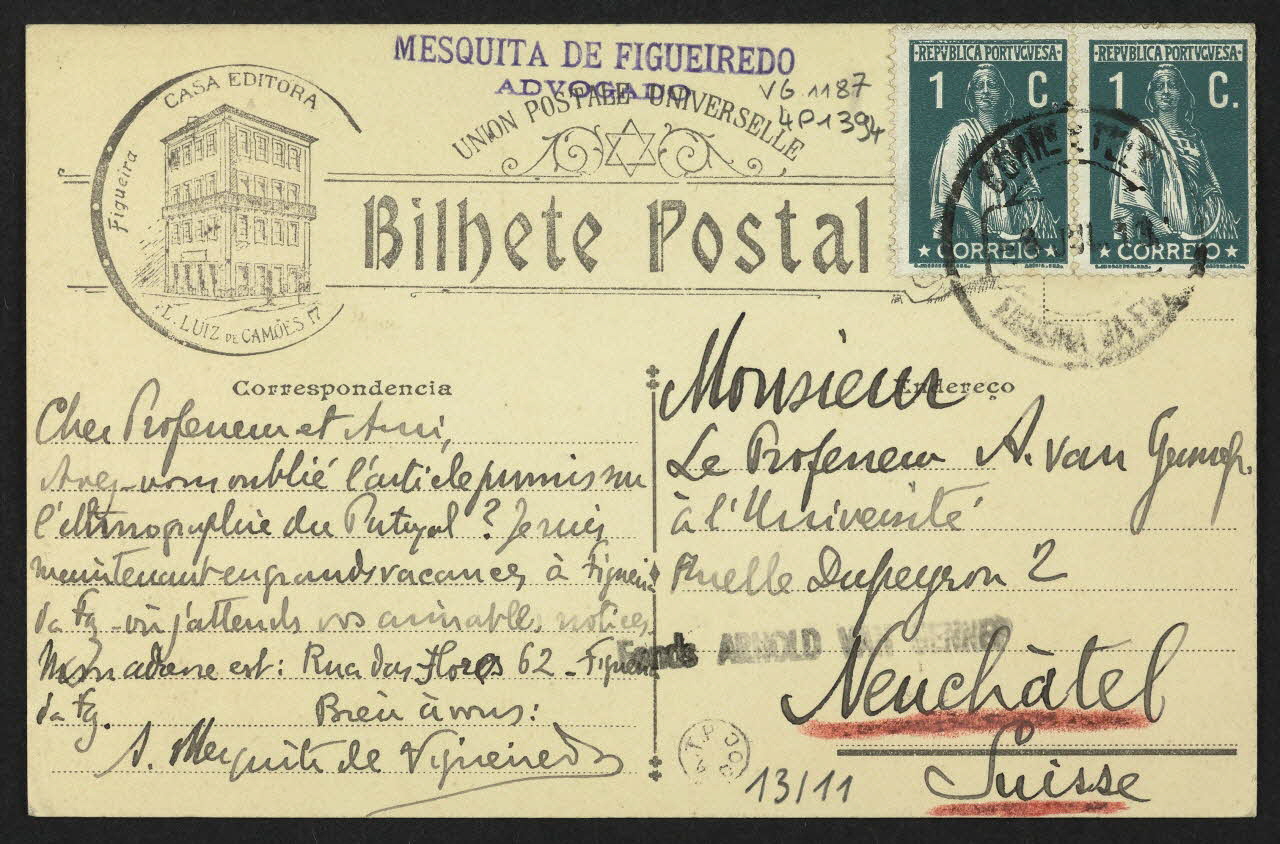 MESQUITA DE FIGUEIREDO
ADVOGADO
VG 1187
4P1394
CASA EDITORA
Figueira
P.L. LUIZ DE CAMÕES 17
UNION POSTALE UNIVERSELLE
Bilhete Postal
·REPVBLICA PORTVGVESA·
1 C.
CORREIO
·REPVBLICA PORTVGVESA·
1 C.
CORREIO
Correspondencia
Cher Professeur et Ami,
Avez-vous oublié l'article promis sur
l'éthnographie du Portugal? Je suis
maintenant en grands vacances à Figueira
da Fz - où j'attends vos aimables notices
Mon adresse est: Rua das Flores 62 - Figueira
da Fz. Bien à vous:
A. Mesquita de Figueiredo
Endereço
Monsieur
Le Professeur A. van Gennep
à l'Université
Ruelle Dupeyron 2
Neuchâtel
Suisse
Fonds ARNOLD VAN GENNEP
A.T.P. DOC
13/11